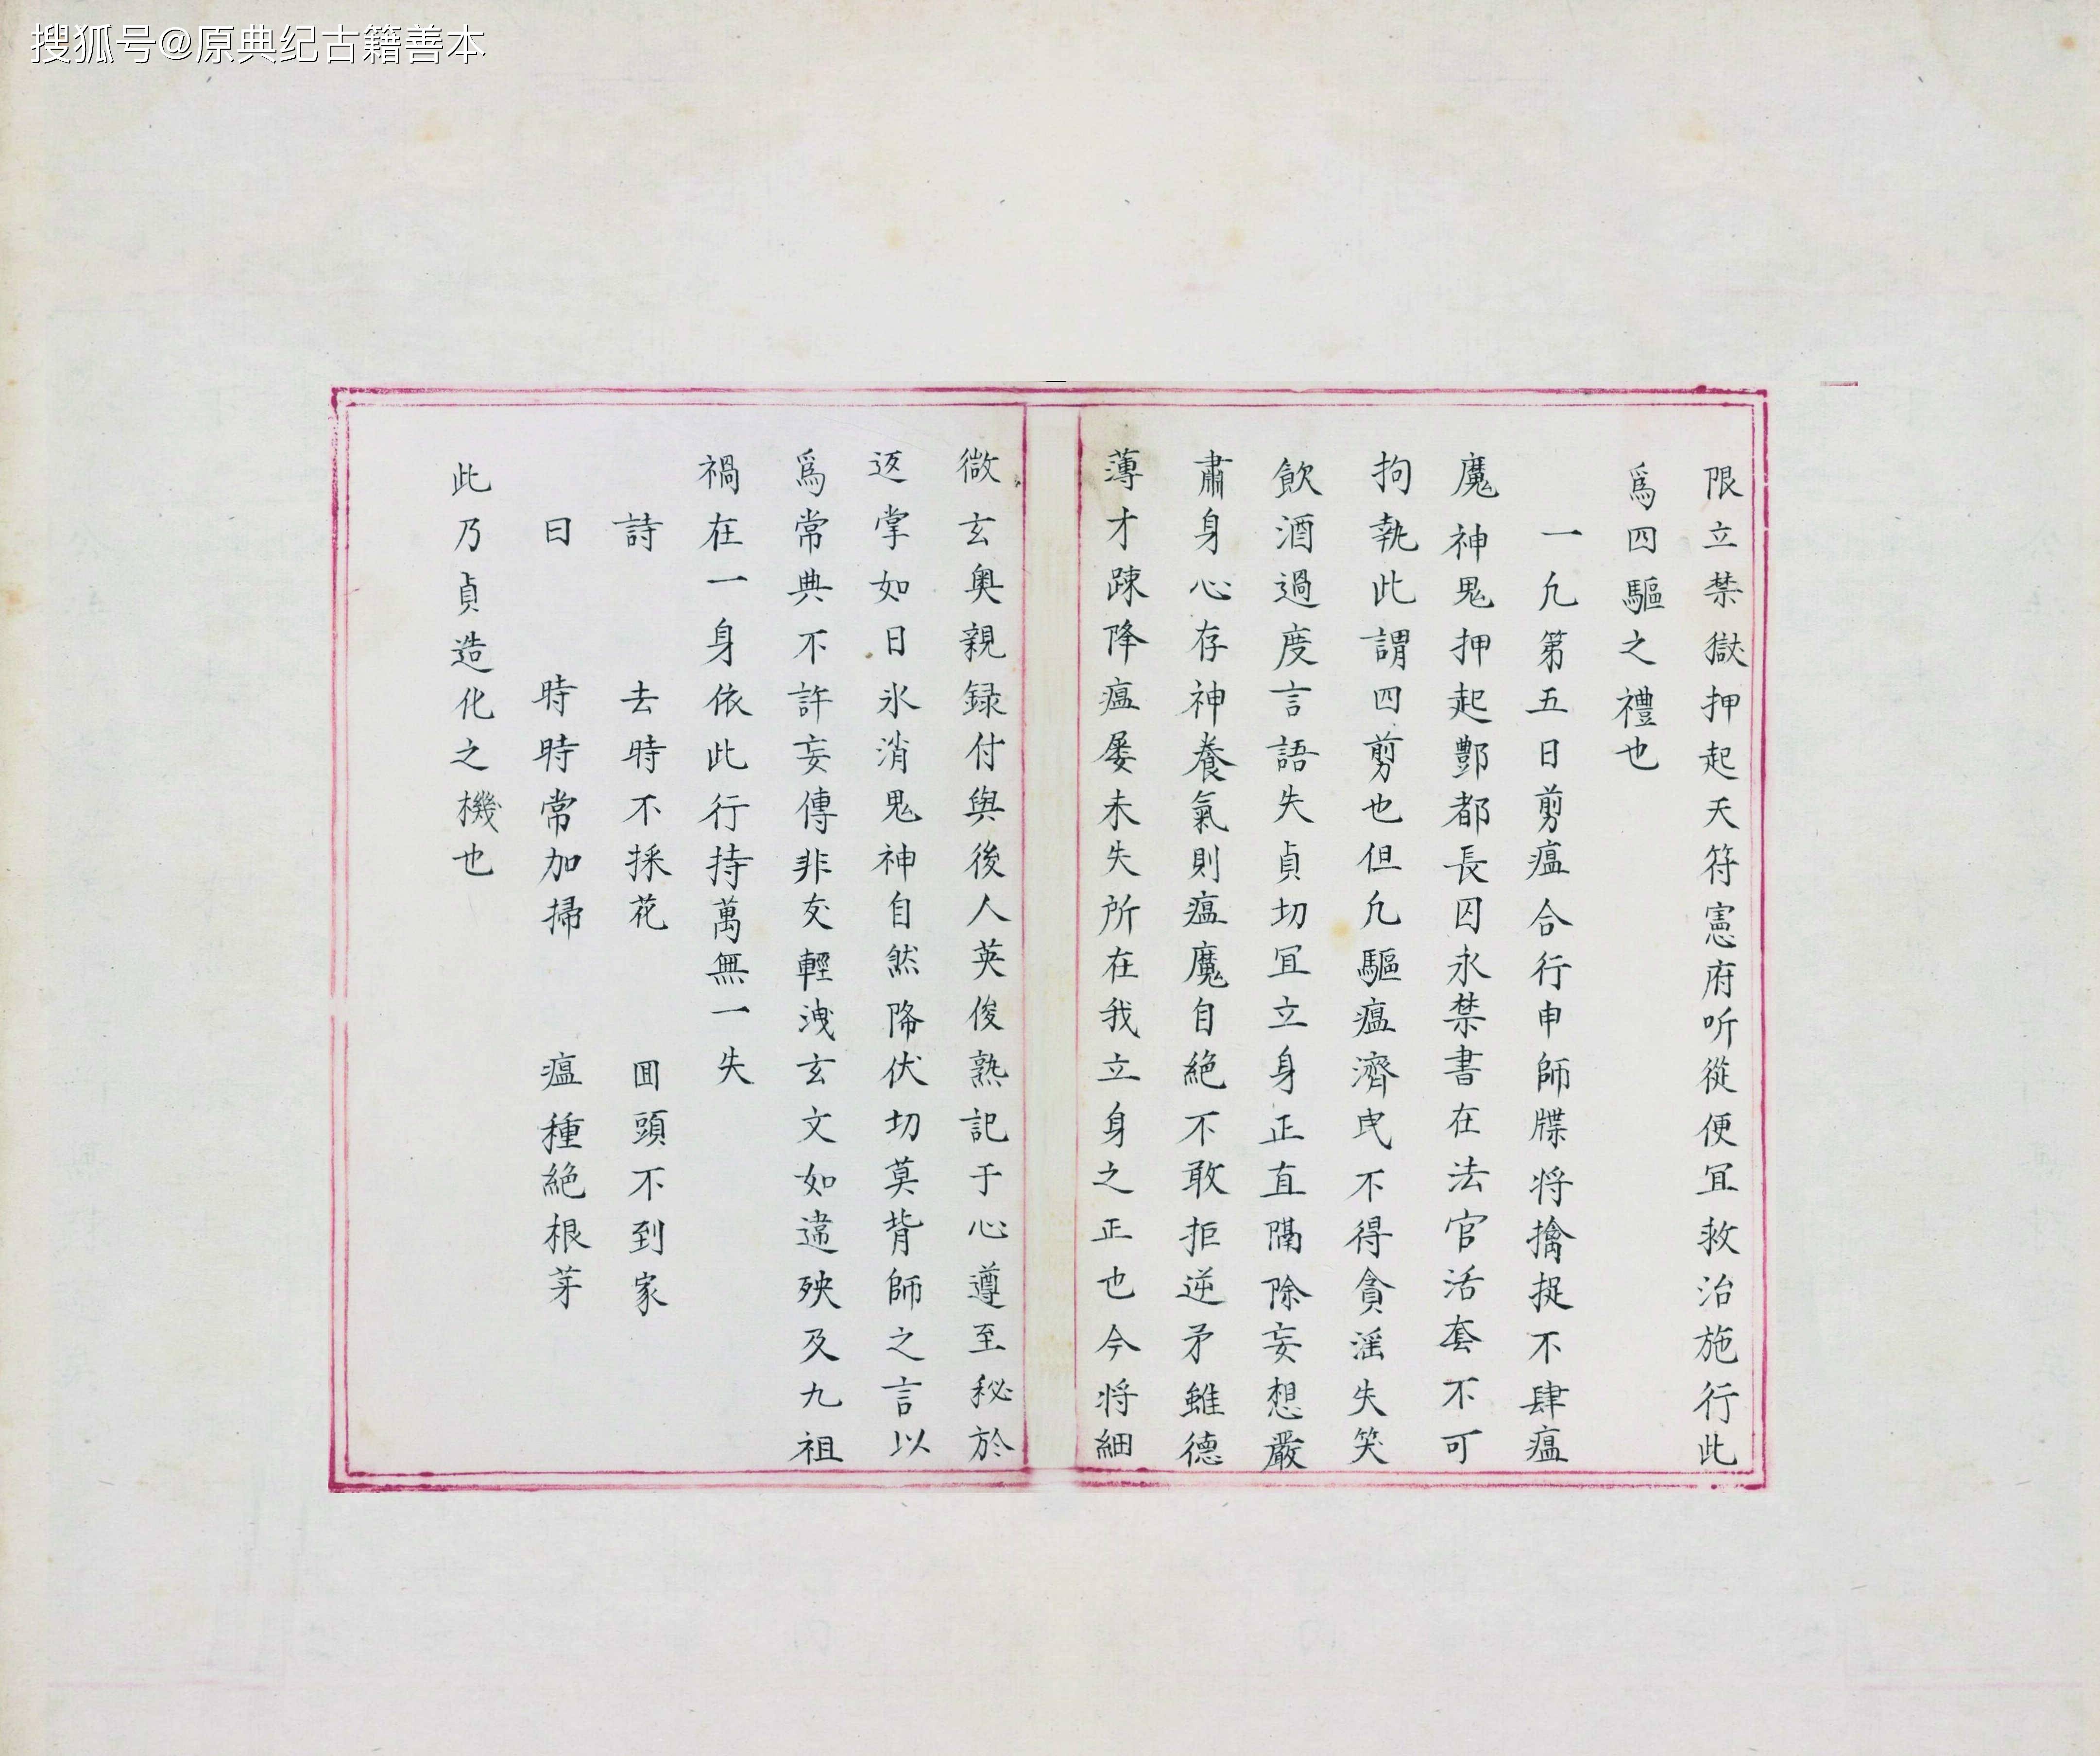 搜狐号@原典纪古籍善本
限立禁獄押起天符憲府听從便冝救治施行此
爲四驅之禮也
一凢第五日剪瘟合行申師牒将擒捉不肆瘟
魔神鬼押起酆都長囚永禁書在法官活套不可
拘執此謂四剪也但凢驅瘟濟民不得貪滛失笑
飲酒過度言語失貞切冝立身正直隔除妄想嚴
肅身心存神養氣則瘟魔自絶不敢拒逆矛雖德
薄才踈降瘟屡未失所在我立身之正也今将細
微玄奥親録付與後人英俊熟記于心遵至秘於
返掌如日氷消鬼神自然降伏切莫背師之言以
爲常典不許妄傳非友輕洩玄文如違殃及九祖
禍在一身依此行持萬無一失
詩 去時不採花 囬頭不到家
曰 時時常加掃 瘟種絶根芽
此乃貞造化之機也